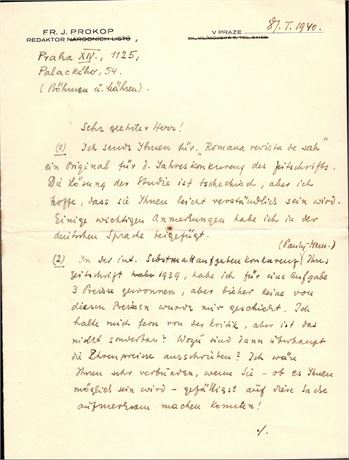 FR. J. PROKOP
REDAKTOR NÁRODNÍCH LISTŮ,
V PRAZE 8/I. 1940.
Praha XIV., 1125,
Palackého, 54.
(Böhmen u. Mähren)
Sehr geehrter Herr!
(1) Ich sende Ihnen für „Romana revista de sah"
ein Original für d. Jahreskonkurenz des Zeitschrifts.
Die Lösung der Studie ist tschechisch, aber ich
hoffe, dass sie Ihnen leicht verständlich sein wird.
Einige wichtigen Anmerkungen habe ich in der
deutschen Sprache beigefügt.
(2) In der int. Selbstmattaufgabenkonkurenz Ihres
Zeitschrift 1939, habe ich für eine Aufgabe
3 Preise gewonnen, aber bisher keine von
diesen Preisen wurde mir geschickt. Ich
halte mich fern von der Kritik, aber ist das
nicht sonderbar? Wozu sind dann überhaupt
die Ehrenpreise ausschreiben? Ich wäre
Ihnen sehr verbunden, wenn Sie - ob es Ihnen
möglich sein wird - gefälligst auf diese Sache
aufmerksam machen könnten!
./.